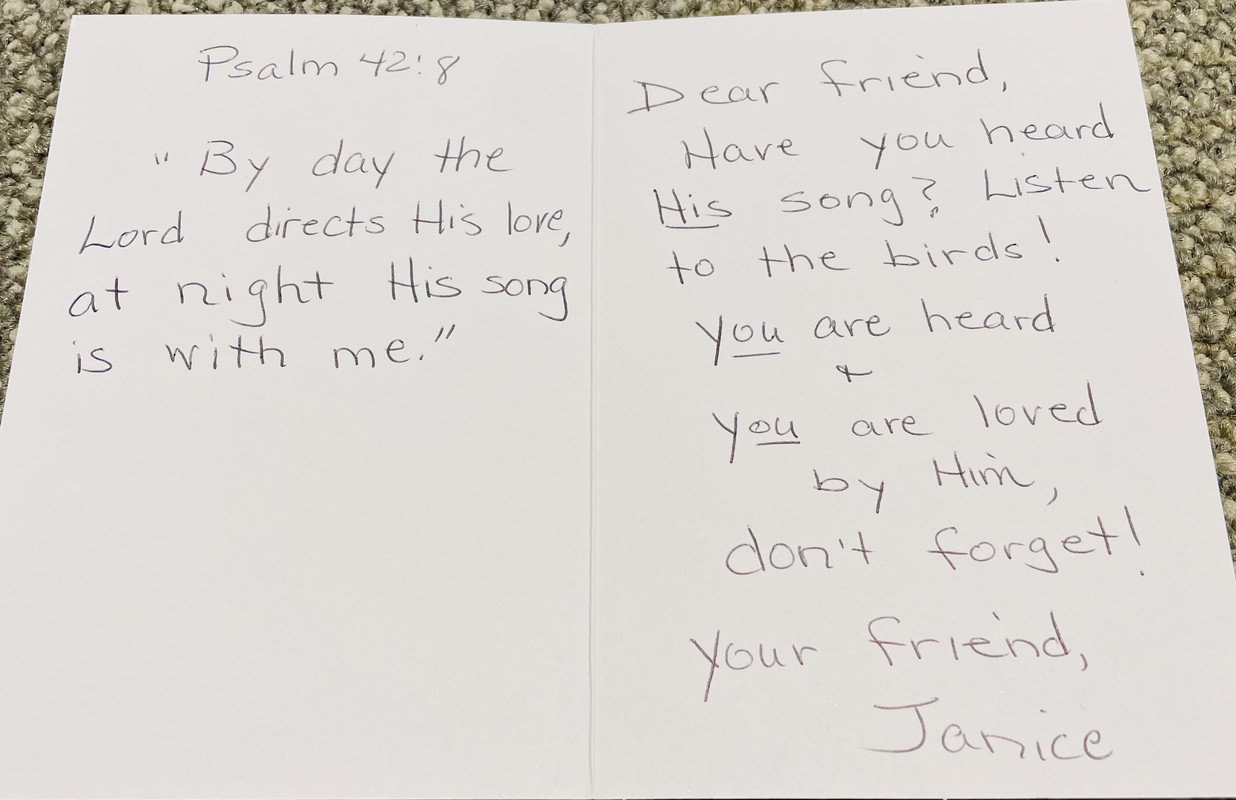 Psalm 42:8
"By day the
Lord directs His love,
at night His song
is with me."
Dear friend,
Have you heard
His song? Listen
to the birds!
you are heard
+
you are loved
by Him,
don't forget!
your friend,
Janice